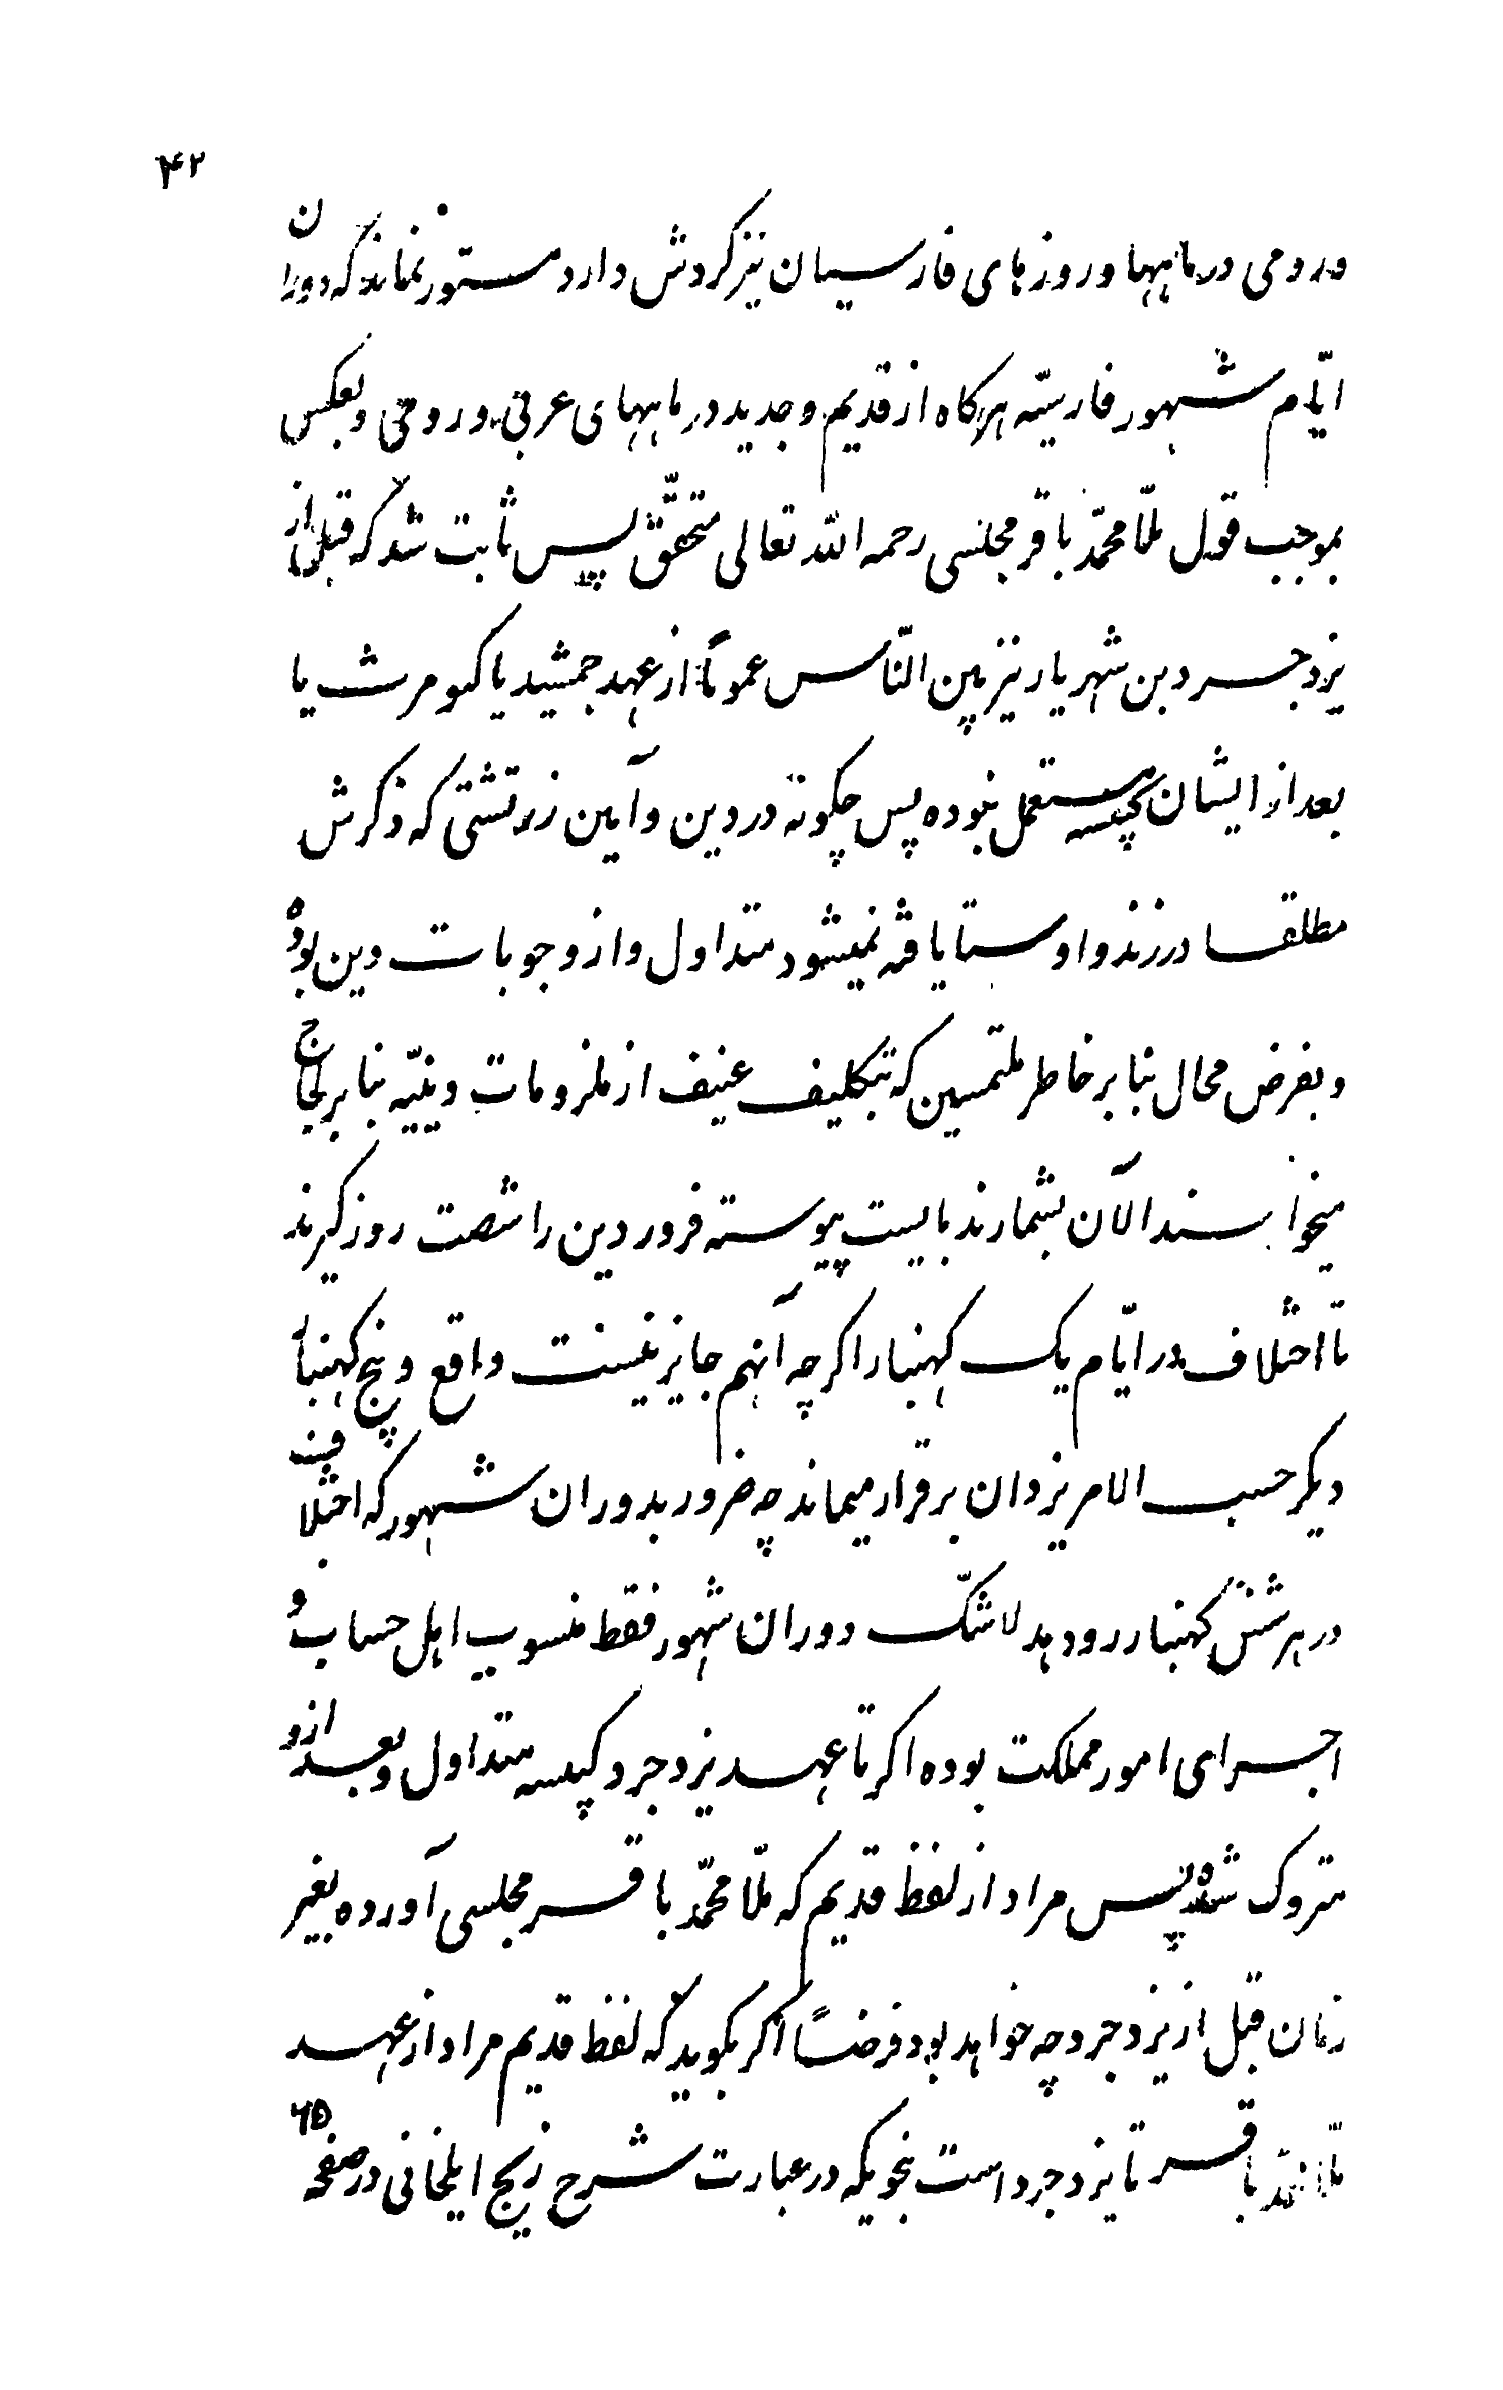 ۴۲
و رومی در ماهها و روزهای فارسیان نیز کردش دارد مستور نماند که دوران
ایّام شهور فارسیّه هرکاه از قدیم و جدید در ماههای عربی و رومی و بعکس
بموجب قول ملّا محمّد باقر مجلسی رحمه اللّه تعالی متحقّق پس ثابت شد که قبل از
یزدجرد بن شهریار نیز بین النّاس عموماً از عهد جمشید یا کیومرث یا
بعد از ایشان کبیسه مستعمل نبوده پس چکونه در دین و آیین زرتشتی که ذکرش
مطلقا در زند و اوستا یافته نمیشود متداول و از وجوبات دین بوده
و بفرض محال بنا بر خاطر ملتمسین که بتکلیف عنیف از ملزومات دینیّه بنا بر لجاج
میخواهند الآن بشمارند بایست پیوسته فروردین را شصت روز کیرند
تا اختلاف در ایّام یک کهنبار اکرچه آنهم جایز نیست واقع و پنج کهنبار
دیکر حسب الامر یزدان برقرار میماند چه ضرور بدوران شهور که اختلاف
در هر شش کهنبار رو دهد لا شکّ دوران شهور فقط منسوب اهل حساب و
اجرای امور مملکت بوده اکر تا عهد یزدجرد کبیسه متداول و بعد از او
متروک شده پس مراد از لفظ قدیم که ملّا محمّد باقر مجلسی آورده بغیر
زمان قبل از یزدجرد چه خواهد بود فرضاً اکر بکوید که لفظ قدیم مراد از عهد
ملّا محمّد باقر تا یزدجرد است بنحویکه در عبارت شرح زیج ایلخانی در صفحه ۶۵